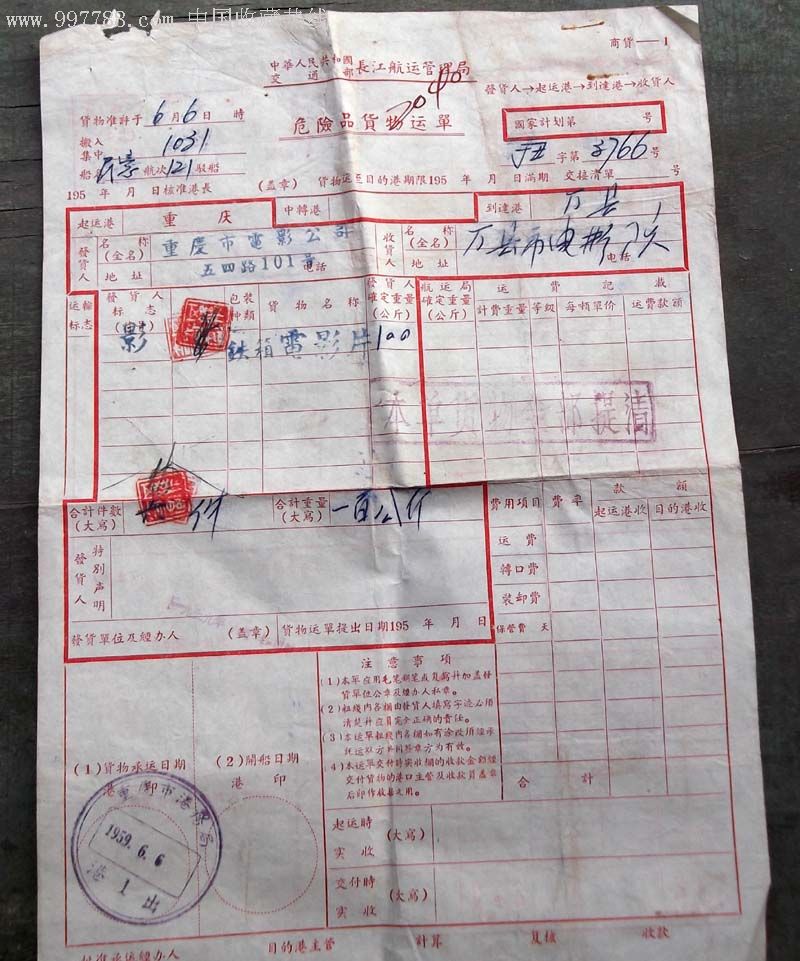 www.997788.com 中国收藏热线
商貨—1
中華人民共和國
交通部
長江航运管理局
發貨人→起运港→到達港→收貨人
危險品貨物运單
2040
國家計划第 号
貨物准許于6月6日 時
搬入
集中 1031
船 航次121駁船
字第3766号
195 年 月 日核准港長 (盖章) 貨物运至目的港期限195 年 月 日滿期 交接清單
起运港 重庆 中轉港 到達港 万县
發貨人 名称(全名) 重慶市電影公司
地址 五四路101号 电話
收貨人 名称(全名) 万县市电影
地址 电話
运輸标志 發貨人标志(略号) 包装种類 貨物名称 發貨人確定重量(公斤) 航运局確定重量(公斤) 运費記載
計費重量 等級 每噸單价 运費款額
影 鉄箱 電影片 100
本单貨物全部提清
合計件数(大寫) 件 合計重量(大寫) 一百公斤
費用項目 費率 款額
起运港收 目的港收
运費
轉口費
装卸費
保管費 天
合計
發貨人特別声明
發貨單位及經办人 (盖章) 貨物运單提出日期195 年 月 日
注意事項
(1)本單应用毛筆鋼筆或复寫幷加盖發
貨單位公章及經办人私章。
(2)粗綫內各欄由發貨人填寫字迹必須
清楚幷应負完全正確的責任。
(3)本运單粗綫內各欄如有涂改須經承
託运双方共同盖章方为有效。
(4)本运單交付時实收欄的收款金額經
交付貨物的港口主管及收款員盖章
后即作收据之用。
(1)貨物承运日期
港印
(2)開船日期
港印
重慶市港務局
1959.6.6
港1出
起运時实收 (大寫)
交付時实收 (大寫)
批准承运經办人 目的港主管 計算 复核 收款